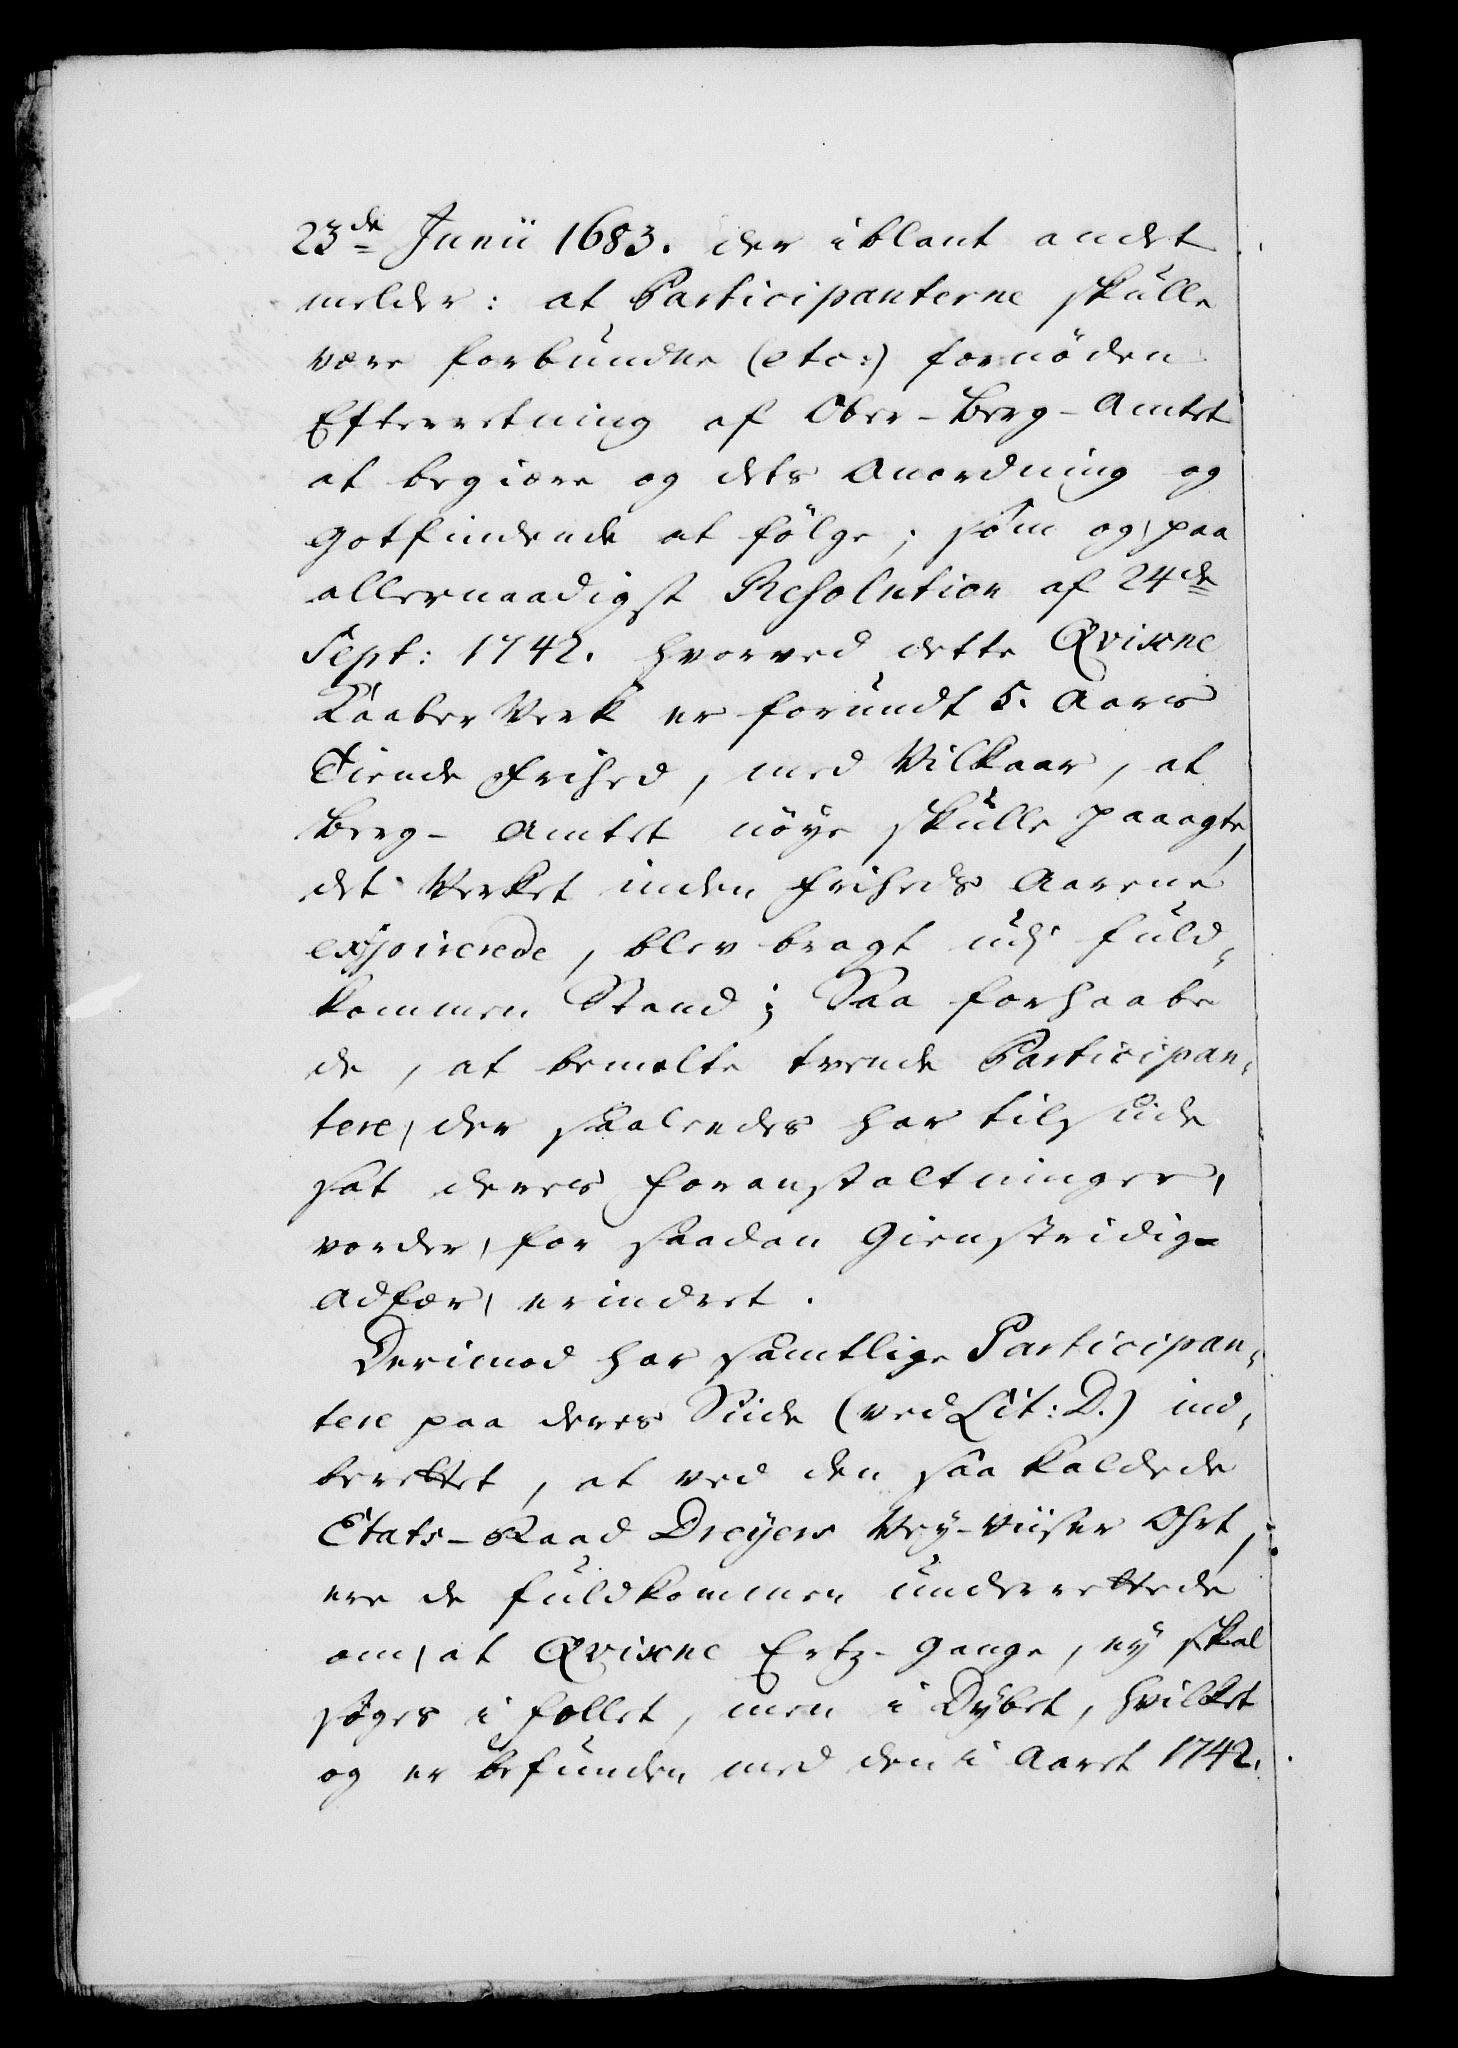 23de Junii 1683. der iblant andet
melder: at Participanterne skulle
være forbundne (etc:) fornöden
Efterretning af Ober-Berg-Amtet
at begiære og dets Anordning og
gotfindende at fölge; som og paa
allernaadigst Resolution af 24de
Sept: 1742. hvorved dette Qvixne
Kaaber Verk er forundt 5. Aars
Tiende Frihed, med Vilkaar, at
Berg-Amtet nöye skulle paaagte,
det Verket inden Friheds Aarene
expirerede, blev bragt udj fuld-
kommen Stand; Saa forhaabe
de, at bemelte tvende Participan-
tere, der saaledes har tilsiide
sat deres foranstaltninger,
vorder, for saadan Gienstridig
Adfær, erindret.
Derimod har samtlige Participan-
tere paa deres Siide (ved Lit: D.) ind-
berettet, at ved den saa kaldede
Etats-Raad Dreyers Vey-Viiser Ohrt,
ere de fuldkommen underrettede
om, at Qvixne Ertz-Gange, ey skal
söges i fallet, men i Dybet, hvilket
og er befunden med den i Aaret 1742.